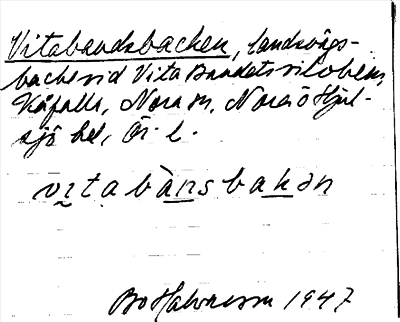 Vitabandsbacken, landsvägs-
backe vid Vita Bandets vilohem,
Kåfalla, Nora sn, Nora o Hjul-
sjö bd, Ör. l.
vḭtabànsbakən
Bo Halvarsson 1947